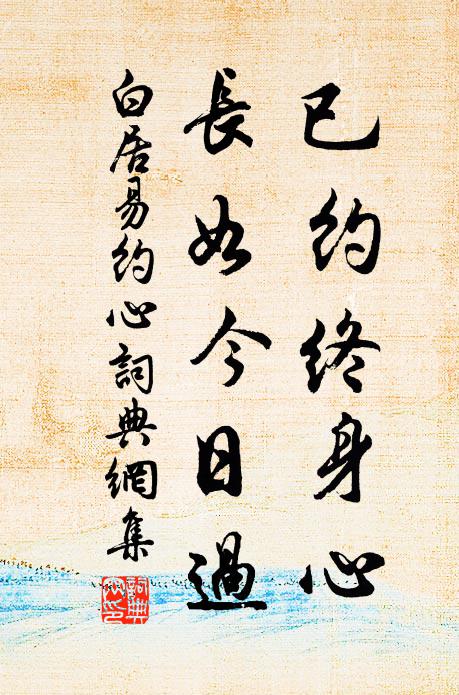 已约终身心
長如今日過
白居易约心詞典網集